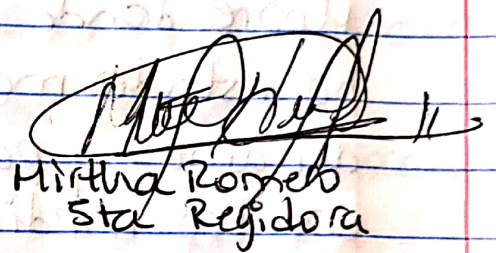 Mirtha Romero
5ta Regidora